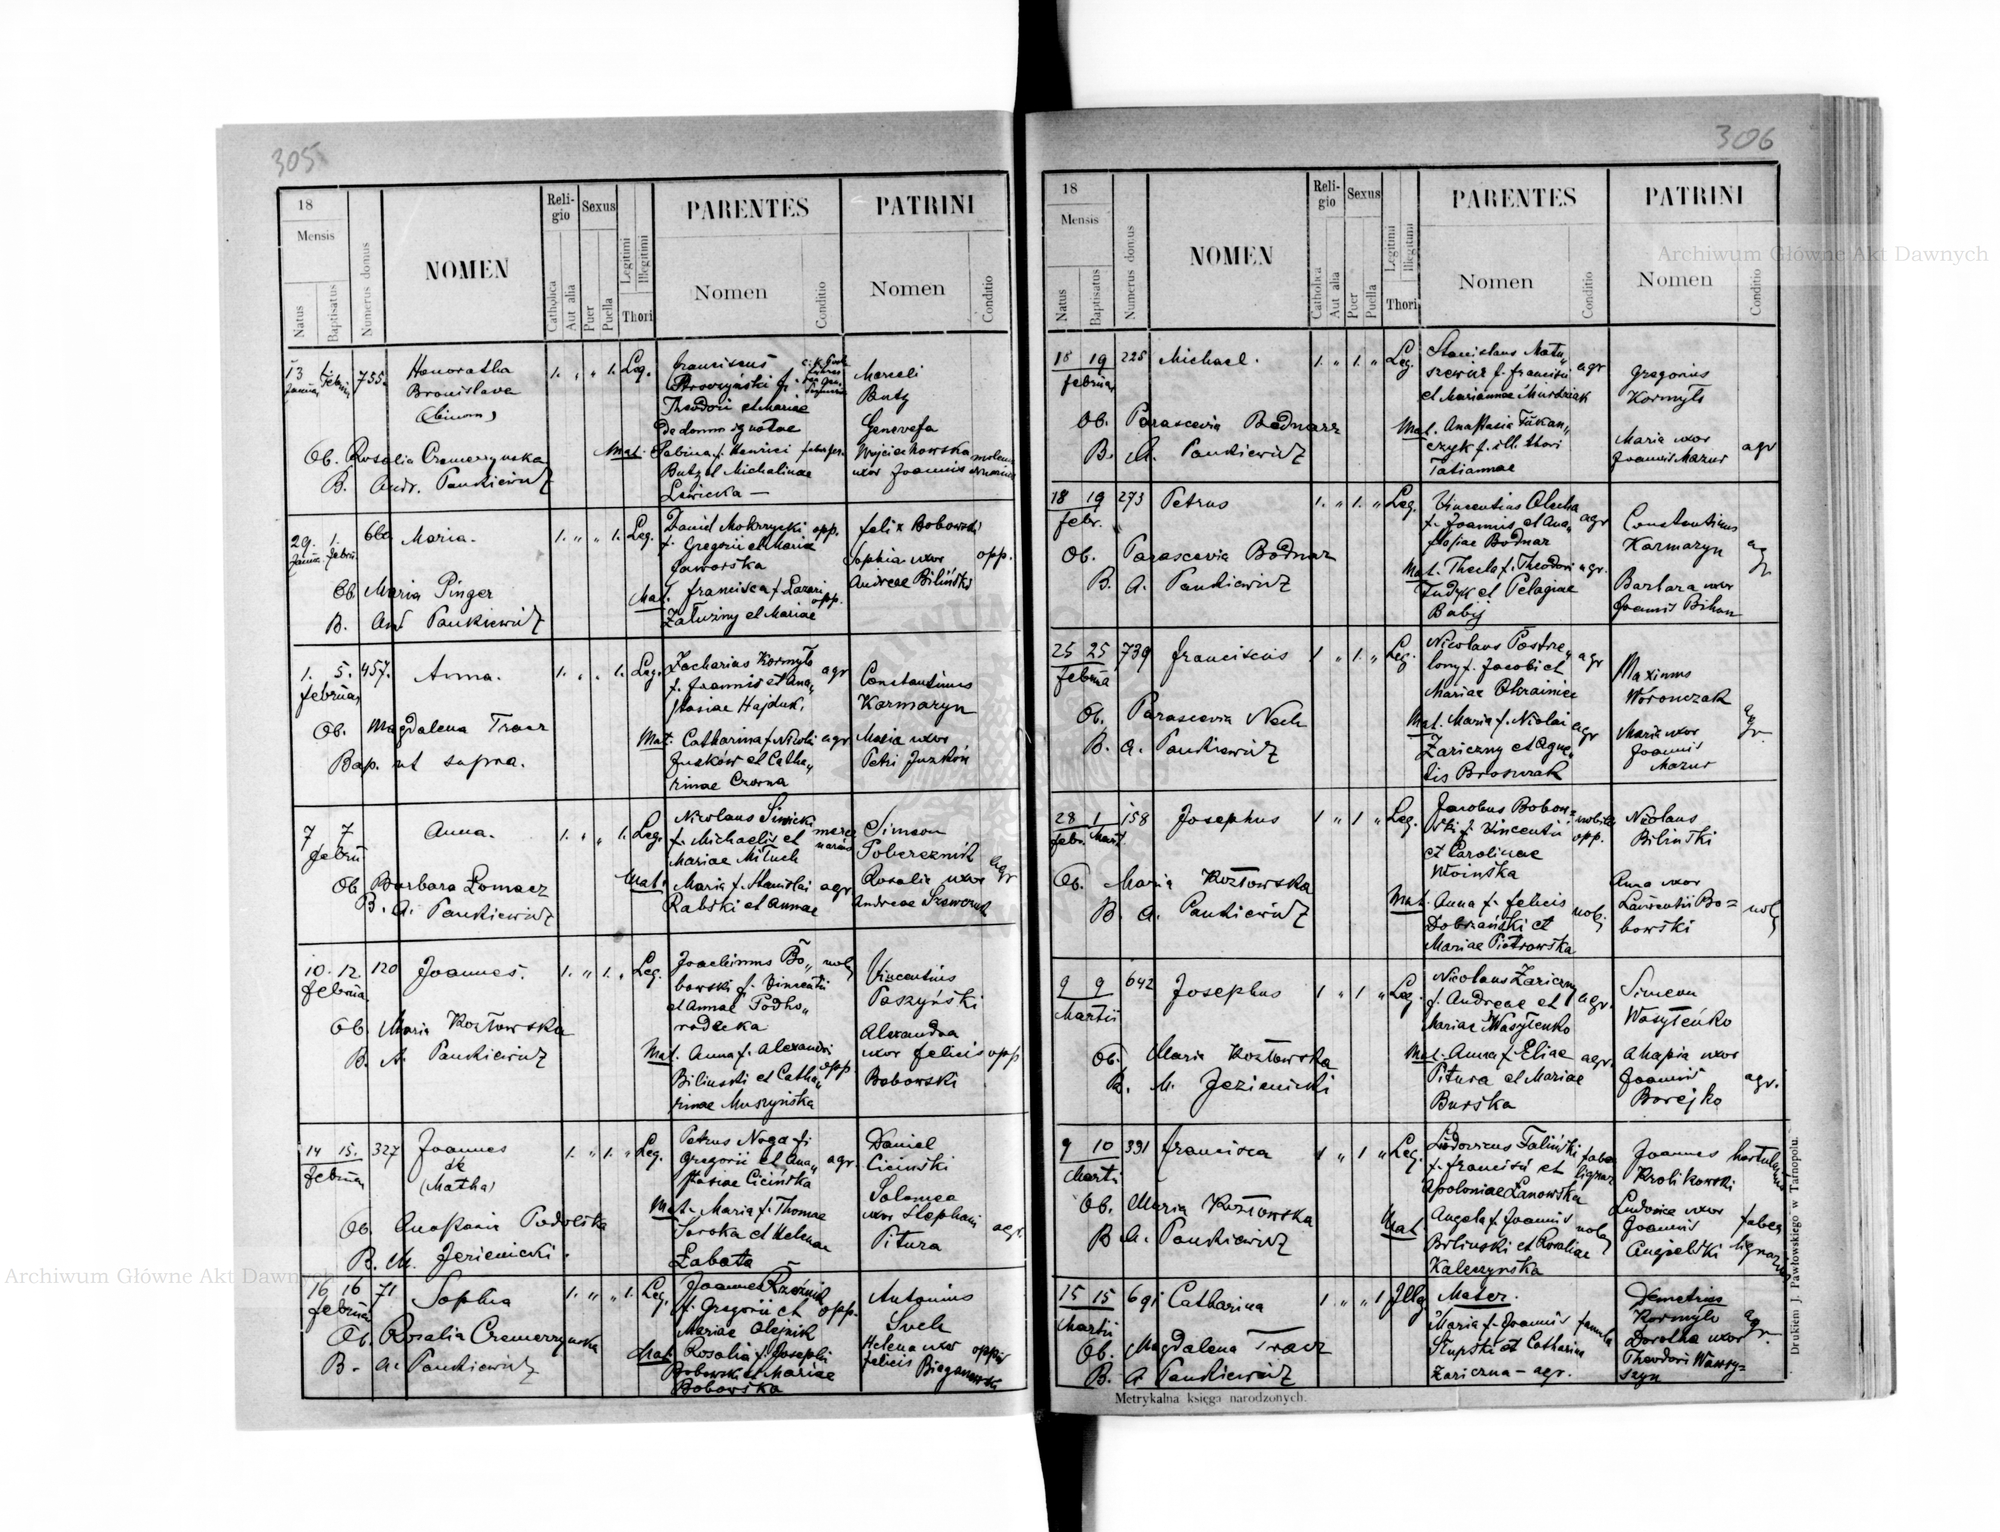 305
18
Mensis
Natus
Baptisatus
Numerus domus
NOMEN
Reli-
gio
Catholica
Aut alia
Sexus
Puer
Puella
Legitimi
Illegitimi
Thori
PARENTES
Nomen
Conditio
PATRINI
Nomen
Conditio
13 1. 755.
Honoratha
Bronislava
(binom)
1. " " 1. Leg.
Franciscus
Theodori et Mariae
de domo ignotae
Mat. Sabina f. Henrici
Butz et Michalinae
Lewicka —
Marceli
Butz
Genovefa
Wojciechowska
uxor Joannis
Ob. Rosalia Cremerzynska
B. Andr. Pankiewicz
29. 1. 660 Maria.
1. " " 1. Leg.
Daniel Mokrzycki opp.
f. Gregorii et Maria
Jaworska
Mat. Francisca f. Lazari
opp.
Załuziny et Mariae
Felix Bobowski
Sophia uxor opp.
Andreae Biliński
Ob. Maria Pinger
B. And Pankiewicz
1. 5. 457. Anna.
Februar
1. " " 1. Leg.
Zacharias Kormyło agr
f. Joannis et Ana"
stasiae Hajduk.
Mat. Catharina f. Nicolai agr
Juzków et Catha"
rinae Czorna
Constantinus
Karmazyn
Maria uxor
Petri Juzków
Ob. Magdalena Tracz
Bap. ut supra.
7 7
Febru
Anna.
1. " " 1. Leg.
Nicolaus Siwicki
f. Michaelis et
Mariae Mituch
Mat. Maria f. Stanislai agr
Rabski et Annae
Simeon
Pobereznik agr
Rosalia uxor
Andreae Szewczuk
Ob. Barbara Łomacz
B. A. Pankiewicz
10. 12. 120 Joannes.
Februa
1. " 1. " Leg.
Joachimus Bo" nob
bowski f. Vincentii
et Annae Podho"
rodecka
Mat. Anna f. Alexandri
opp
Bilinski et Catha"
rinae Muszyńska
Vincentius
Paszyński
Alexandra
uxor Felicis opp
Bobowski
Ob. Maria Kozłowska
B. A. Pankiewicz
14 15. 327 Joannes
Februar
de
(Matha)
1. " 1. " Leg.
Petrus Noga f.
Gregorii et Ana" agr.
stasiae Cicińska
Mat. Maria f. Thomae
Soroka et Helenae
Łabata
Daniel
Ciciński
Salomea
uxor Stephani agr.
Pitura
Ob. Anastasia Podolska
B. M. Jezienicki.
16 16 71 Sophia
Februar
1. " " 1. Leg.
Joannes Rzeźnik
f. Gregorii et opp.
Mariae Olejnik
Mat. Rosalia f. Josephi
Bobowski et Mariae
Bobowska
Antonius
Helena uxor
Felicis Bieganowski
Ob. Rosalia Cremerzynska
B. A. Pankiewicz
306
18
Mensis
Natus
Baptisatus
Numerus domus
NOMEN
Reli-
gio
Catholica
Aut alia
Sexus
Puer
Puella
Legitimi
Illegitimi
Thori
PARENTES
Nomen
Conditio
PATRINI
Nomen
Conditio
18 19 225 Michael.
Februar
1. " 1. " Leg.
Stanislaus Matu"
szewski f. Francisci agr
et Mariannae Murdziak
Mat. Anastasia Tukan"
czyk f. ill. thori
Tatiannae
Gregorius
Kormyło
Maria uxor agr
Joannis Mazur
Ob. Parascevia Bednarz
B. A. Pankiewicz
18 19 273 Petrus
Febr.
1. " 1. " Leg.
Vincentius Olecha
f. Joannis et Ana" agr
stasiae Bodnar
Mat. Thecla f. Theodori agr.
Dudyk et Pelagiae
Babij
Constantinus
Karmazyn agr
Barbara uxor
Joannis Bihun
Ob. Parascevia Bodnar
B. A. Pankiewicz
25 25 739 Franciscus
Februa
1 " 1. " Leg.
Nicolaus Postre"
lony f. Jacobi et agr
Mariae Okrainiec
Mat. Maria f. Nicolai agr
Zariczny et Agne"
tis Broszczak
Maximus
Woronczak
Maria uxor agr
Joannis
Mazur
Ob. Parascevia Nech
B. A. Pankiewicz
28 1 158 Josephus
Febr. Mart
1 " 1 " Leg.
Jacobus Bobow= nobilis
ski f. Vincentii opp.
et Carolinae
Woińska
Mat. Anna f. Felicis nob.
Dobrzański et
Mariae Piotrowska
Nicolaus
Biliński
Anna uxor
Laurentii Bo= nob
bowski
Ob. Maria Kozłowska
B. A. Pankiewicz
9 9 642 Josephus
Martii
1 " 1 " Leg.
Nicolaus Zariczny
f. Andreae et agr.
Mariae Wasyleńko
Mat. Anna f. Eliae agr.
Pitura et Mariae
Burska
Simeon
Wasyleńko
Ahapia uxor
Joannis agr.
Borejko
Ob. Maria Kozłowska
B. M. Jezienicki
9 10 391 Francisca
Marti
1 " 1 " Leg.
Ludovicus Taliński faber
f. Francisci et lignar
Apoloniae Łanowska
Mat. Angela f. Joannis nob
Biliński et Rosaliae
Kaleczynska
Joannes hortulanus
Krolikowski
Ludovica uxor
Joannis faber
lignarius
Ob. Maria Kozłowska
B. A. Pankiewicz
15 15 691 Catharina
Martii
1 " " 1 Illeg
Mater.
Maria f. Joannis famula
Słupski et Catharina
Zariczna — agr.
Demetrius
Kormyło agr
Dorothea uxor
Theodori Wawry=
szyn
Ob. Magdalena Tracz
B. A Pankiewicz
Metrykalna księga narodzonych.
Drukiem J. Pawłowskiego w Tarnopolu.
Archiwum Główne Akt Dawnych
Archiwum Główne Akt Dawnych